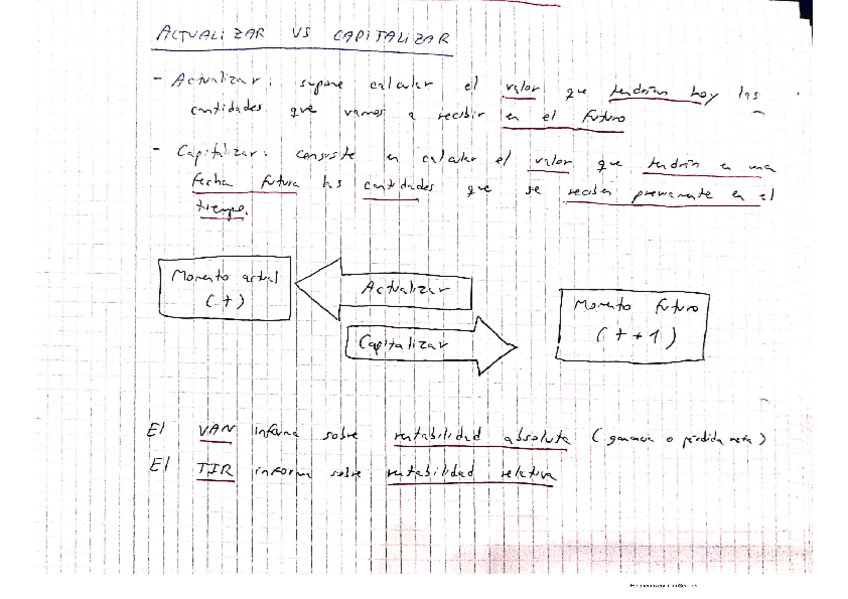 ACTUALIZAR VS CAPITALIZAR
- Actualizar: supone calcular el valor que tendrían hoy las
cantidades que vamos a recibir en el futuro
- Capitalizar: consiste en calcular el valor que tendrán en una
fecha futura las cantidades que se reciben previamente en el
tiempo.
Momento actual
(t)
Actualizar
Capitalizar
Momento futuro
(t+1)
El VAN informa sobre rentabilidad absoluta (ganancia o pérdida neta)
El TIR informa sobre rentabilidad relativa